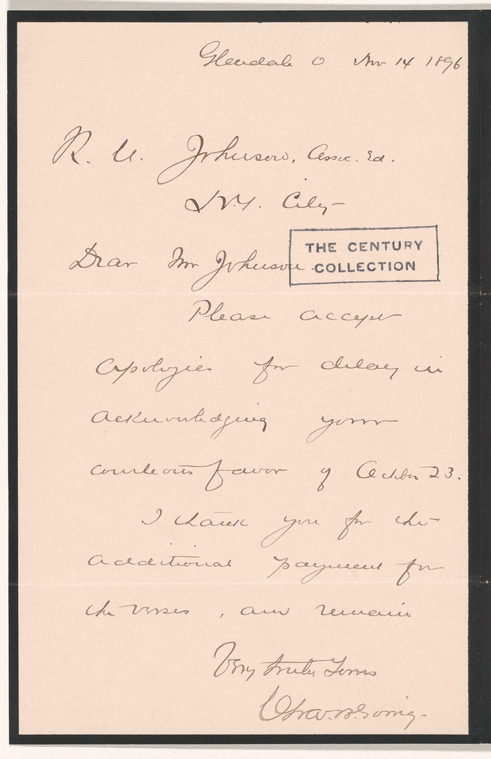 Glendale O Nov 14 1896
R. U. Johnson, Assoc. Ed.
N.Y. City
Dear Mr Johnson
THE CENTURY
COLLECTION
Please accept
apologies for delay in
acknowledging your
courteous favor of October 23.
I thank you for the
additional payment for
the verses, and remain
Very truly Yours